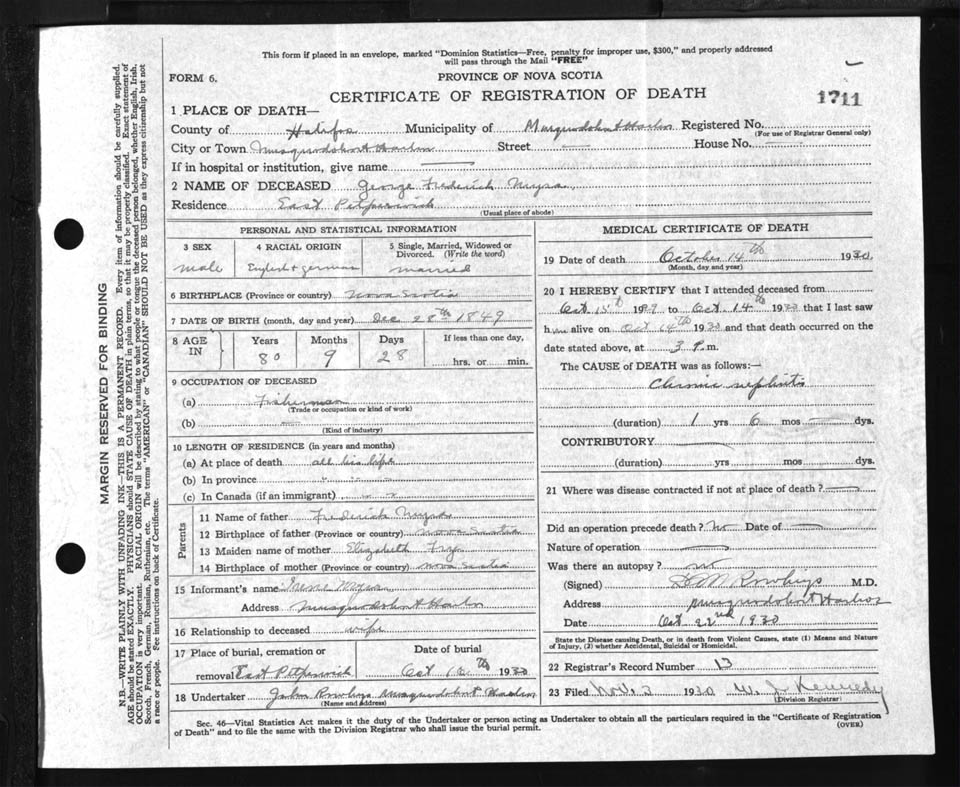 This form if placed in an envelope, marked "Dominion Statistics—Free, penalty for improper use, $300," and properly addressed
will pass through the Mail "FREE"
FORM 6.
PROVINCE OF NOVA SCOTIA
CERTIFICATE OF REGISTRATION OF DEATH
1711
1 PLACE OF DEATH—
County of Halifax Municipality of Musquodoboit Harbor Registered No.
(For use of Registrar General only)
City or Town Musquodoboit Harbor Street — House No. —
If in hospital or institution, give name —
2 NAME OF DECEASED George Frederick Myra
Residence East Petpeswick
(Usual place of abode)
PERSONAL AND STATISTICAL INFORMATION
3 SEX
male
4 RACIAL ORIGIN
English & german
5 Single, Married, Widowed or
Divorced. (Write the word)
married
6 BIRTHPLACE (Province or country) Nova Scotia
7 DATE OF BIRTH (month, day and year) Dec 28th 1849
8 AGE
IN
Years Months Days If less than one day,
80 9 28 hrs. or min.
9 OCCUPATION OF DECEASED
(a) Fisherman
(Trade or occupation or kind of work)
(b) —
(Kind of industry)
10 LENGTH OF RESIDENCE (in years and months)
(a) At place of death all his life
(b) In province " " "
(c) In Canada (if an immigrant)
Parents
11 Name of father Frederick Myra
12 Birthplace of father (Province or country) Nova Scotia
13 Maiden name of mother Elizabeth
14 Birthplace of mother (Province or country) Nova Scotia
15 Informant's name Irene Myra
Address Musquodoboit Harbor
16 Relationship to deceased wife
17 Place of burial, cremation or
removal East Petpeswick
Date of burial
Oct 16th 1930
18 Undertaker John Rowlings Musquodoboit Harbor
(Name and Address)
MEDICAL CERTIFICATE OF DEATH
19 Date of death October 14th 1930
(Month, day and year)
20 I HEREBY CERTIFY that I attended deceased from
Oct 15th 1929 to Oct. 14th 1930 that I last saw
him alive on Oct 14th 1930 and that death occurred on the
date stated above, at 3 P.m.
The CAUSE of DEATH was as follows:—
Chronic nephritis
(duration) 1 yrs 6 mos — dys.
CONTRIBUTORY —
(duration) yrs mos dys.
21 Where was disease contracted if not at place of death? —
Did an operation precede death? no Date of —
Nature of operation —
Was there an autopsy? no
(Signed) Rowlings M.D.
Address Musquodoboit Harbor
Date Oct 22nd 1930
State the Disease causing Death, or in death from Violent Causes, state (1) Means and Nature
of Injury, (2) whether Accidental, Suicidal or Homicidal.
22 Registrar's Record Number 13
23 Filed Nov. 2 1930 W. J. Kennedy
(Division Registrar)
Sec. 46—Vital Statistics Act makes it the duty of the Undertaker or person acting as Undertaker to obtain all the particulars required in the "Certificate of Registration
of Death" and to file the same with the Division Registrar who shall issue the burial permit.
(OVER)
MARGIN RESERVED FOR BINDING
N.B.—WRITE PLAINLY WITH UNFADING INK—THIS IS A PERMANENT RECORD. Every item of information should be carefully supplied.
AGE should be stated EXACTLY. PHYSICIANS should STATE CAUSE OF DEATH in plain terms, so that it may be properly classified. Exact statement of
OCCUPATION is very important. RACIAL ORIGIN will be described by stating to what people or tongue the deceased person belonged, whether English, Irish,
Scotch, French, German, Russian, Ruthenian, etc. The terms "AMERICAN" or "CANADIAN" SHOULD NOT BE USED as they express citizenship but not
a race or people. See instructions on back of Certificate.